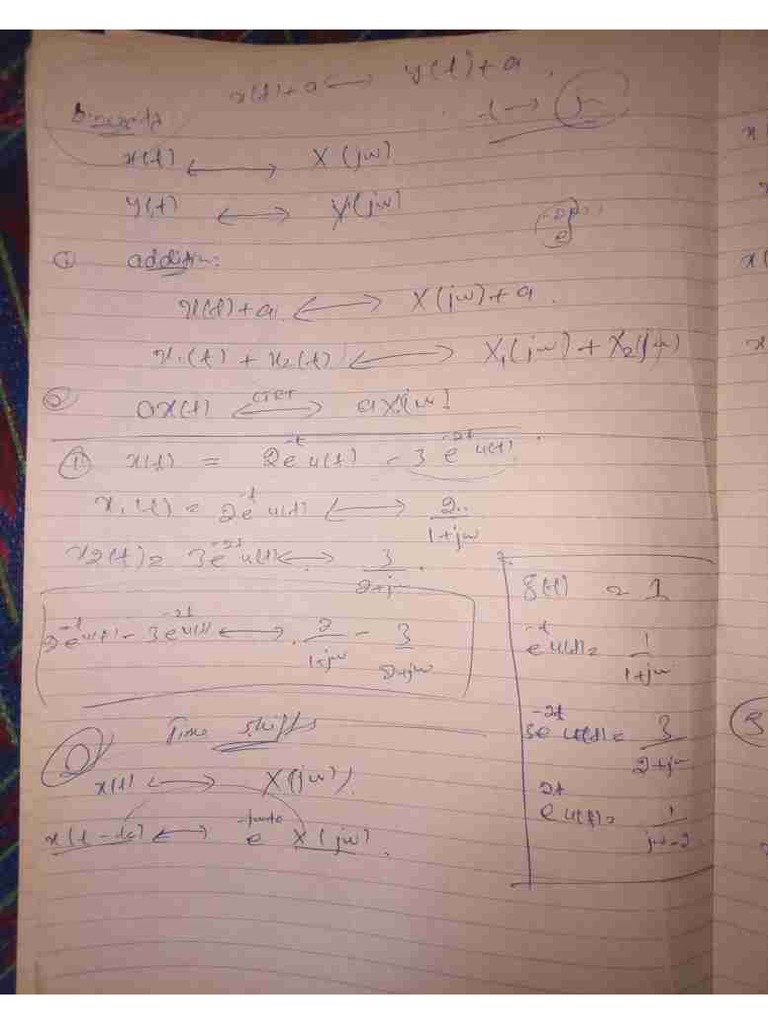 x(t)+a ⟷ y(t)+a
t → jω
x(t) ⟷ X(jω)
y(t) ⟷ Y(jω)
① addition:
x(t)+a ⟷ X(jω)+a
x₁(t) + x₂(t) ⟷ X₁(jω) + X₂(jω)
② ax(t) ⟷ aX(jω)
① x(t) = 2e^{-t} u(t) - 3e^{-2t} u(t)
x₁(t) = 2e^{-t} u(t) ⟷ 2/(1+jω)
x2(t) = 3e^{-2t} u(t) ⟷ 3/(2+jω)
2e^{-t} u(t) - 3e^{-2t} u(t) ⟷ 2/(1+jω) - 3/(2+jω)
δ(t) = 1
e^{-t} u(t) = 1/(1+jω)
3e^{-2t} u(t) = 3/(2+jω)
e^{2t} u(t) = 1/(jω-2)
② Time shift
x(t) ⟷ X(jω)
x(t-to) ⟷ e^{-jωto} X(jω)